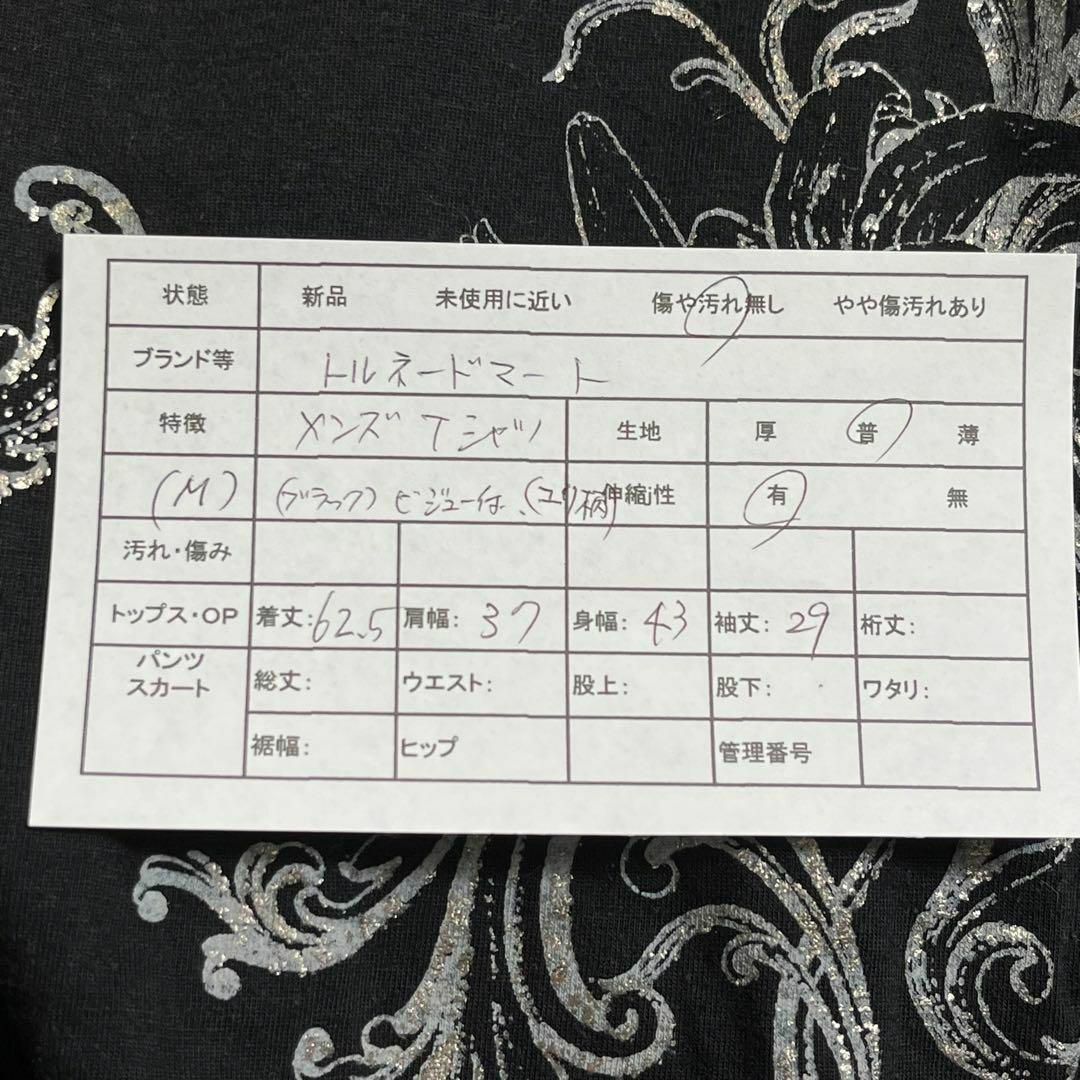 状態 新品 未使用に近い 傷や汚れ無し やや傷汚れあり
ブランド等 トルネードマート
特徴 メンズ Tシャツ 生地 厚 普 薄
(M) (ブラック) ビジュー付、(ユリ柄) 伸縮i性 有 無
汚れ・傷み
トップス・OP 着丈: 62.5 肩幅: 37 身幅: 43 袖丈: 29 裄丈:
パンツ
スカート 総丈: ウエスト: 股上: 股下: ワタリ:
裾幅: ヒップ 管理番号